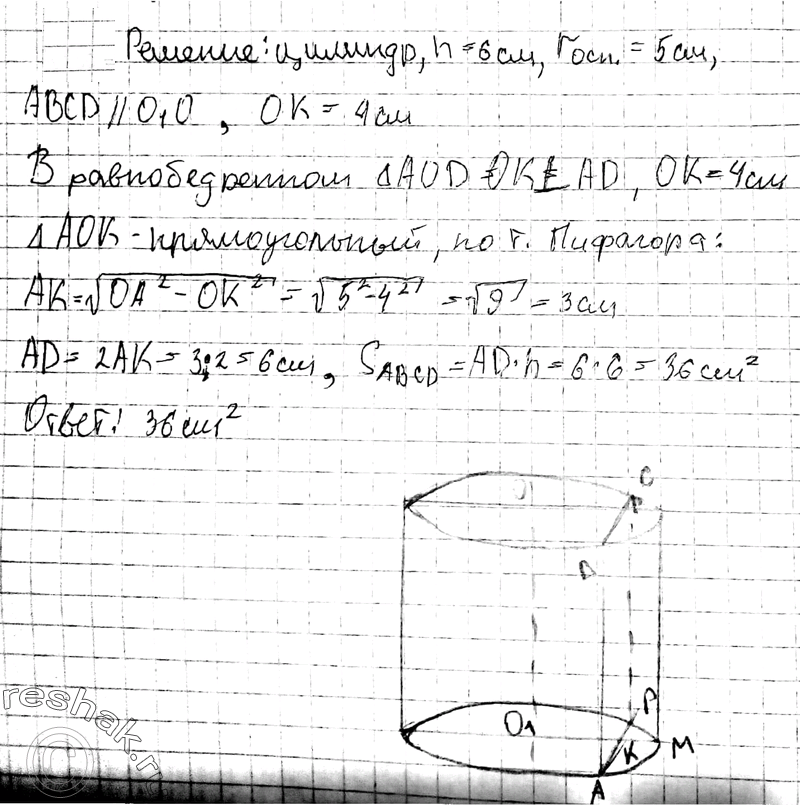 Решение: цилиндр, h = 6 см, rосн. = 5 см,
ABCD // O₁O, OK = 4 см
В равнобедренном ΔAOD OK ⊥ AD, OK = 4 см
ΔAOK - прямоугольный, по т. Пифагора:
AK = √(OA² - OK²) = √(5² - 4²) = √9 = 3 см
AD = 2AK = 3·2 = 6 см, S_ABCD = AD·h = 6·6 = 36 см²
Ответ: 36 см²
C
O₁
K
M
A
reshak.ru
©